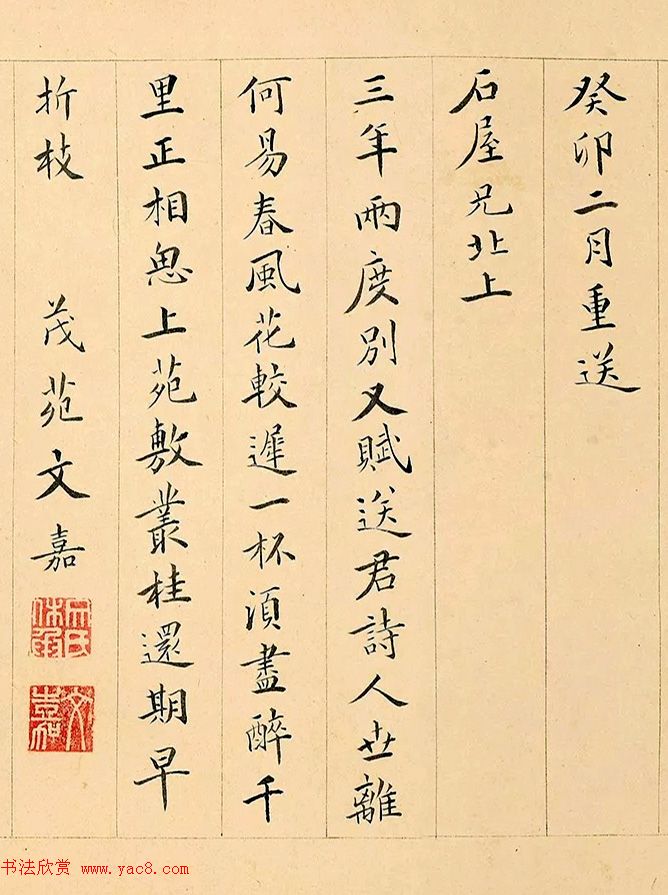 癸卯二月重送
石屋兄北上
三年兩度別又賦送君詩人世離
何易春風花較遲一杯湏盡醉千
里正相思上苑敷叢桂還期早
折枝 茂苑文嘉
文氏休承
文嘉
书法欣赏 www.yac8.com